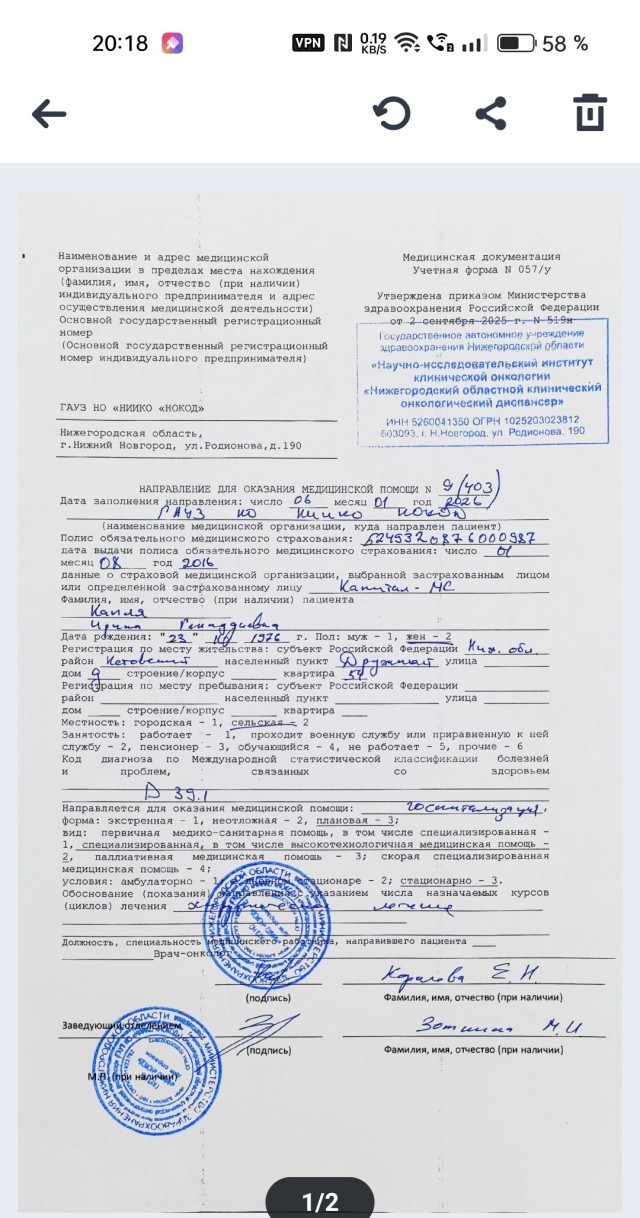 20:18
VPN
0.19
KB/S
58 %
Наименование и адрес медицинской
организации в пределах места нахождения
(фамилия, имя, отчество (при наличии)
индивидуального предпринимателя и адрес
осуществления медицинской деятельности)
Основной государственный регистрационный
номер
(Основной государственный регистрационный
номер индивидуального предпринимателя)
ГАУЗ НО «НИИКО «НОКОД»
Нижегородская область,
г.Нижний Новгород, ул.Родионова,д.190
Медицинская документация
Учетная форма N 057/у
Утверждена приказом Министерства
здравоохранения Российской Федерации
от 2 сентября 2025 г. N 519н
Государственное автономное учреждение
здравоохранения Нижегородской области
«Научно-исследовательский институт
клинической онкологии
«Нижегородский областной клинический
онкологический диспансер»
ИНН 5260041350 ОГРН 1025203023812
603093, г. Н.Новгород, ул. Родионова, 190
НАПРАВЛЕНИЕ ДЛЯ ОКАЗАНИЯ МЕДИЦИНСКОЙ ПОМОЩИ N 9/403)
Дата заполнения направления: число 06 месяц 01 год 2026
ГАУЗ НО НИИКО НОКОД
(наименование медицинской организации, куда направлен пациент)
Полис обязательного медицинского страхования: 5245320876000987
дата выдачи полиса обязательного медицинского страхования: число 01
месяц 08 год 2016
данные о страховой медицинской организации, выбранной застрахованным лицом
или определенной застрахованному лицу Капитал-МС
Фамилия, имя, отчество (при наличии) пациента
Капля
Ирина Геннадиевна
Дата рождения: "23" 10 1976 г. Пол: муж - 1, жен - 2
Регистрация по месту жительства: субъект Российской Федерации Ниж. обл.
район Кстовский населенный пункт Дружный улица
дом 9 строение/корпус квартира 54
Регистрация по месту пребывания: субъект Российской Федерации
район населенный пункт улица
дом строение/корпус квартира
Местность: городская - 1, сельская - 2
Занятость: работает - 1, проходит военную службу или приравненную к ней
службу - 2, пенсионер - 3, обучающийся - 4, не работает - 5, прочие - 6
Код диагноза по Международной статистической классификации болезней
и проблем, связанных со здоровьем
D 39.1
Направляется для оказания медицинской помощи: госпитализация,
форма: экстренная - 1, неотложная - 2, плановая - 3;
вид: первичная медико-санитарная помощь, в том числе специализированная -
1, специализированная, в том числе высокотехнологичная медицинская помощь -
2, паллиативная медицинская помощь - 3; скорая специализированная
медицинская помощь - 4;
условия: амбулаторно - 1, в дневном стационаре - 2; стационарно - 3.
Обоснование (показания) направления с указанием числа назначаемых курсов
(циклов) лечения хирургическое лечение
Должность, специальность медицинского работника, направившего пациента
Врач-онколог
(подпись)
Фамилия, имя, отчество (при наличии)
Заведующий отделением
(подпись)
Зоткина М.И
Фамилия, имя, отчество (при наличии)
М.П. (при наличии)
1/2